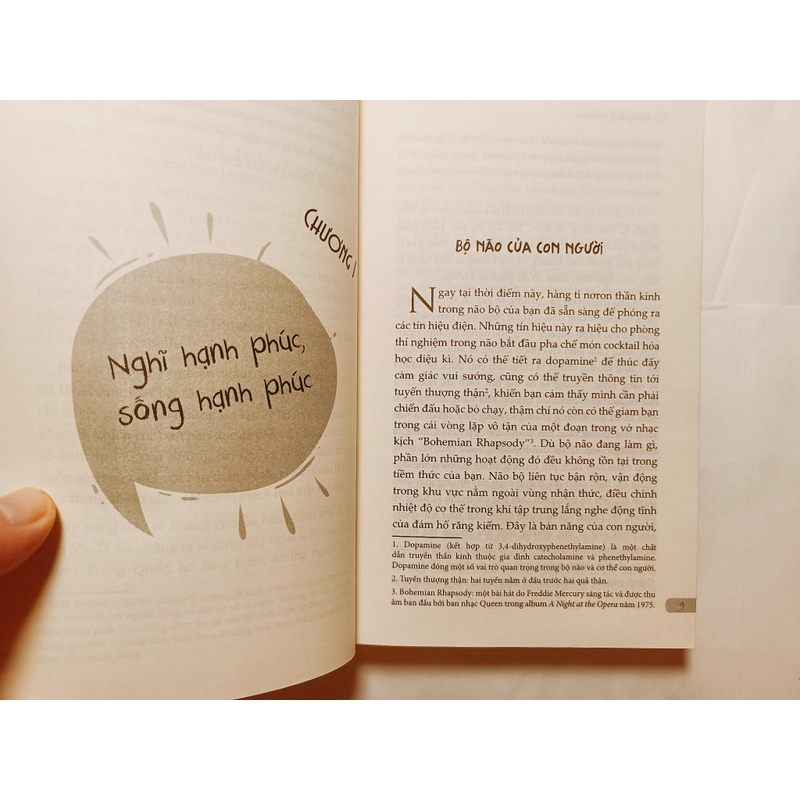 CHƯƠNG 1
Nghĩ hạnh phúc,
sống hạnh phúc
BỘ NÃO CỦA CON NGƯỜI
Ngay tại thời điểm này, hàng tỉ nơron thần kinh
trong não bộ của bạn đã sẵn sàng để phóng ra
các tín hiệu điện. Những tín hiệu này ra hiệu cho phòng
thí nghiệm trong não bắt đầu pha chế món cocktail hóa
học diệu kì. Nó có thể tiết ra dopamine¹ để thúc đẩy
cảm giác vui sướng, cũng có thể truyền thông tin tới
tuyến thượng thận², khiến bạn cảm thấy mình cần phải
chiến đấu hoặc bỏ chạy, thậm chí nó còn có thể giam bạn
trong cái vòng lặp vô tận của một đoạn trong vở nhạc
kịch “Bohemian Rhapsody”³. Dù bộ não đang làm gì,
phần lớn những hoạt động đó đều không tồn tại trong
tiềm thức của bạn. Não bộ liên tục bận rộn, vận động
trong khu vực nằm ngoài vùng nhận thức, điều chỉnh
nhiệt độ cơ thể trong khi tập trung lắng nghe động tĩnh
của đám hổ răng kiếm. Đây là bản năng của con người,
1. Dopamine (kết hợp từ 3,4-dihydroxyphenethylamine) là một chất
dẫn truyền thần kinh thuộc gia đình catecholamine và phenethylamine.
Dopamine đóng một số vai trò quan trọng trong bộ não và cơ thể con người.
2. Tuyến thượng thận: hai tuyến nằm ở đầu trước hai quả thận.
3. Bohemian Rhapsody: một bài hát do Freddie Mercury sáng tác và được thu
âm ban đầu bởi ban nhạc Queen trong album A Night at the Opera năm 1975.
9